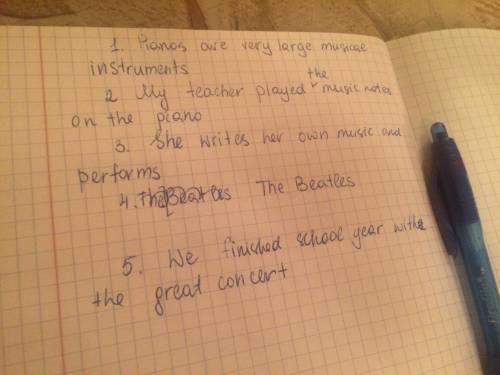 1. Pianos are very large musical
instruments
2 My teacher played the music notes
on the piano
3. She writes her own music and
performs
4. The Beatles
5. We finished school year with
the great concert